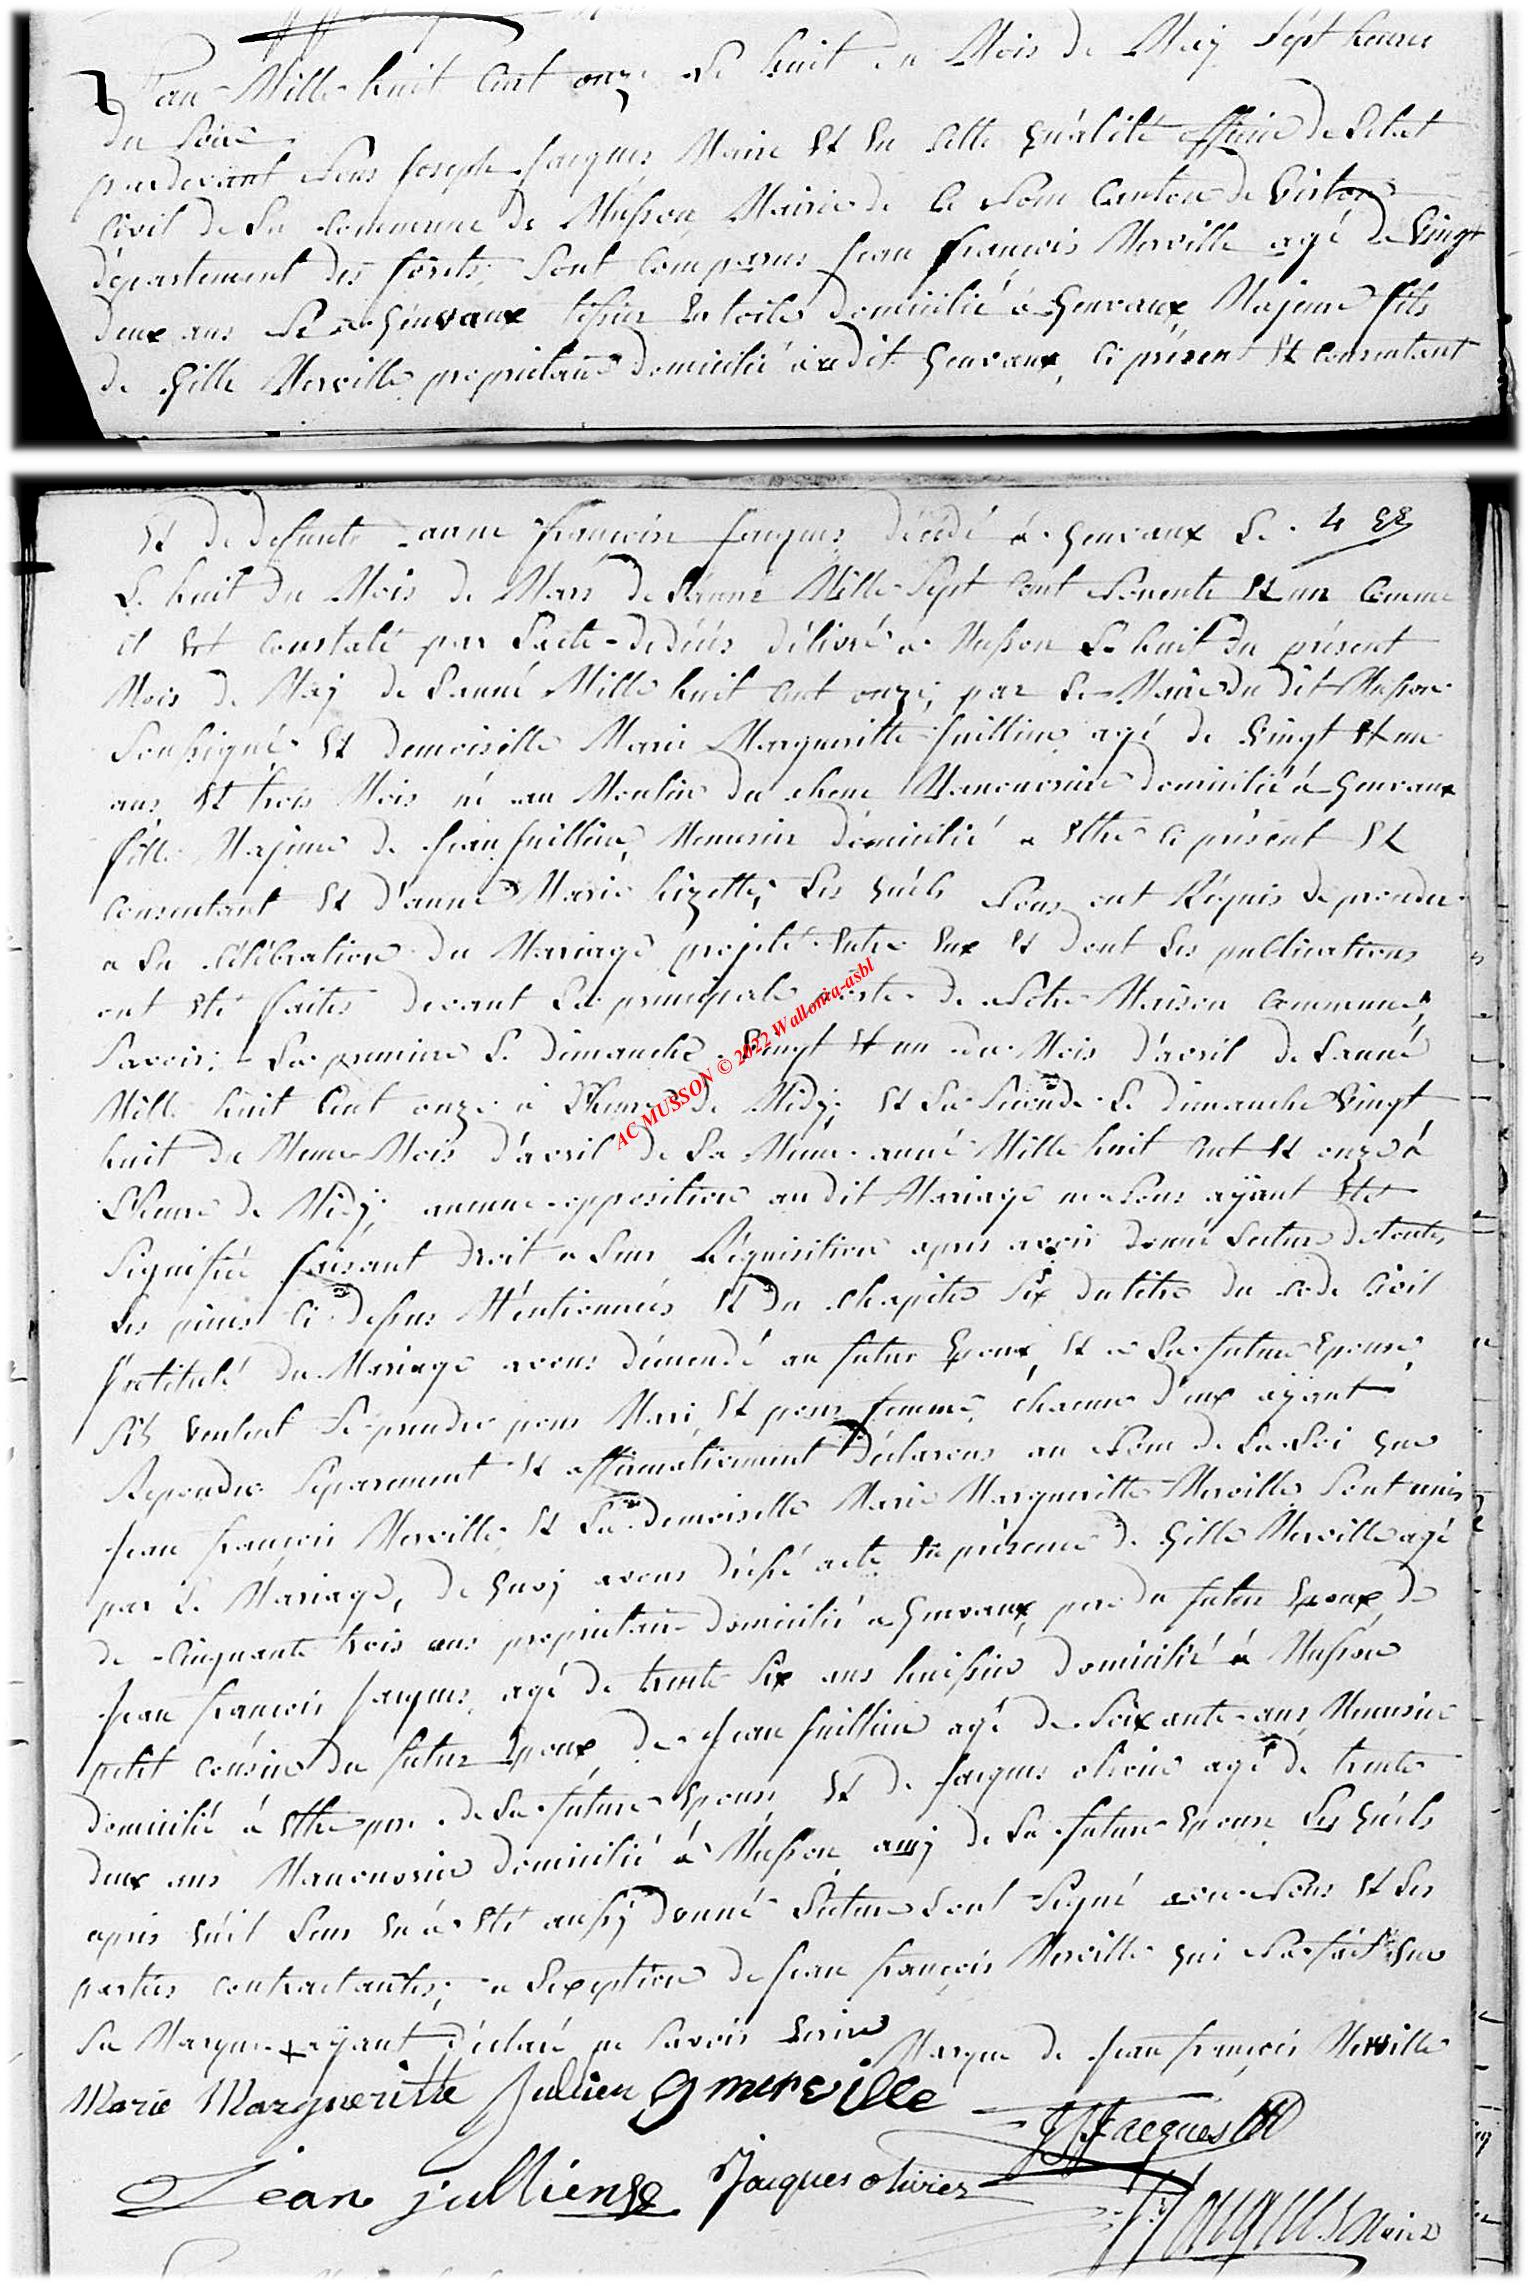 L'an Mille huit Cent onze Le huit du Mois de May Sept heures
du Soire
pardevant Nous Joseph Jacques Maire Et En Cette Qualité officier de L'etat
Civil de La Commune de Musson Mairie de Ce Nom Canton de Virton
département des forêts, Sont Comparus Jean François Merville agé de Vingt
deux ans Né à Genvaux tissier En toile domicilié à Genvaux, Majeur fils
de Gille Merville propriétaire domicilié audit Genvaux, Ci présent Et Consentant
Et de defunte anne françoise Jacques, décédé à Genvaux Le
Le huit du Mois de Mars de L'année Mille Sept Cent Nonente Et un Comme
il Est Constaté par L'acte de décès délivré à Musson Le huit du présent
Mois de May de L'anné Mille huit Cent onze, par Le Maire du dit Musson
Soussigné Et demoiselle Marie Margueritte Juillien agé de Vingt Et un
ans Et trois Mois né au Moulin du chene Manouvrier domicilié à Genvaux
fille Majeure de Jean Juillien, Menusier domicilié a Ethe Ci présent Et
Consentant Et d'anne Marie Lizette, Les Quels Nous ont Réquis de proceder
a La Célébration du Mariage projeté Entre Eux Et dont Les publications
ont Eté faites devant La principale porte de Notre Maison Commune,
Savoir: La premiere Le dimanche Vingt Et un du Mois d'avril de L'anné
Mille huit Cent onze à L'heure de Midy, Et La Seconde Le dimanche Vingt
huit du Meme Mois d'avril de La Même anné Mille huit Cent Et onze à
L'heure de Midy, aucune opposition au dit Mariage ne Nous ayant Eté
Signifiée faisant droit a Leur Réquisition apres avoir donné Lecture de toutes
Les pieces Ci dessus Mentionnées Et du Chapitre Six du titre du Code Civil
Jntitulé du Mariage avons démendé au futur Epoux, Et a La future Epouse
S'ils Veulent Se prendre pour Mari Et pour femme, chacun d'eux ayant
Repondu Séparement Et affirmativement Déclarons au Nom de La Loi que
Jean François Merville Et La demoiselle Marie Margueritte Merville Sont unis
par Le Mariage, de quoj avons dressé acte En présence de Gille Merville agé
de Cinquante trois ans propriétaire domicilié a Genvaux, pere du futur Epoux, de
Jean François Jacques, agé de trente Six ans huissier domicilié à Musson
petit cousin du futur Epoux, de Jean Juillien agé de Soixante ans Menusier
domicilié à Ethe pere de La future Epouse Et de Jacques olivier agé de trente
deux ans Manouvrier domicilié à Musson amj de La future Epouse Les Quels
après qu'il Leur En a Eté aussj donné Lecture L'ont Signé avec Nous Et Les
parties contractantes, a L'exeption de Jean François Merville qui N'a fait que
Sa Marque + ayant déclaré ne Savoir Ecrire Marque de Jean François Merville
Marie Margueritte Jullien G merville
J F Jacques
Jean jullien Jacques olivier
J Jacques Maire
AC MUSSON © 2022 Wallonia-asbl